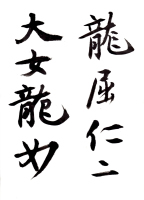 龍屈仁二
大女龍